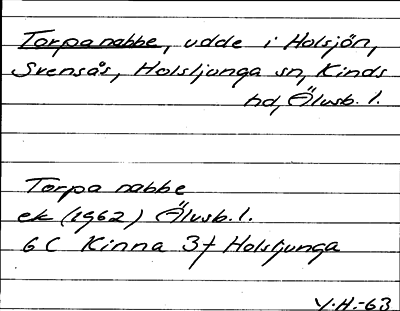 Torpanabbe, udde i Holsjön,
Svensås, Holsljunga sn, Kinds
hd, Älvsb. l.
Torpa nabbe
ek (1962) Älvsb. l.
6 C Kinna 3f Holsljunga
V.H.-63